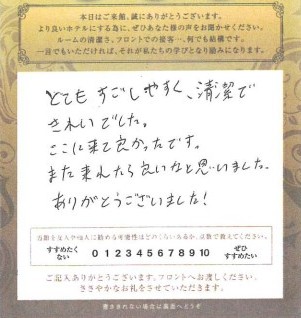 本日はご来館、誠にありがとうございます。
より良いホテルにする為に、ぜひあなた様の声をお聞かせください。
ルームの清潔さ、フロントでの接客…何でも結構です。
一言でもいただければ、それが私たちの学びとなり励みになります。
とても すごしやすく、清潔で
きれいでした。
ここに来て良かったです。
また来れたら良いなと思いました。
ありがとうございました!
当館を友人や知人に勧める可能性はどのくらいあるか、点数で教えてください。
すすめたくない 0 1 2 3 4 5 6 7 8 9 10 ぜひすすめたい
ご記入ありがとうございます。フロントへお渡しください。
ささやかなお礼をさせていただきます。
書ききれない場合は裏面へどうぞ